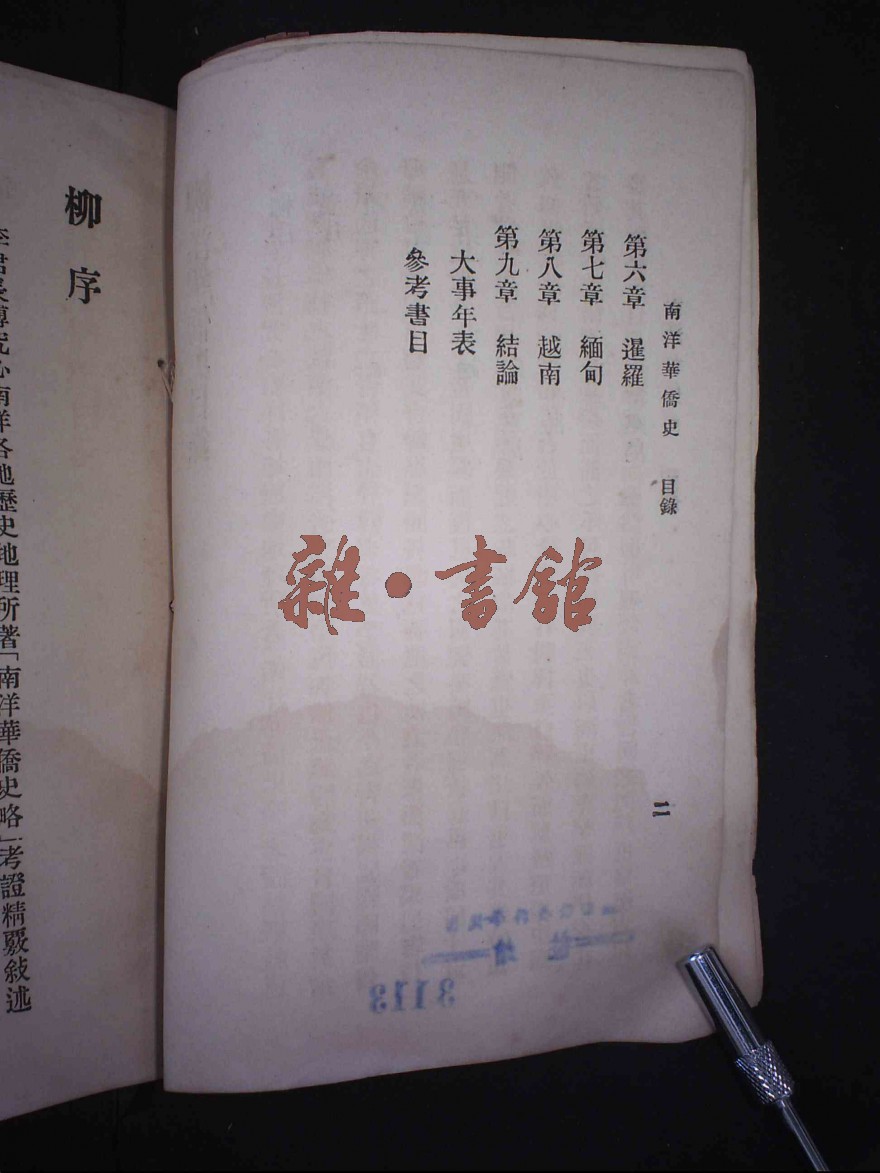 南洋華僑史 目錄
二
第六章 暹羅
第七章 緬甸
第八章 越南
第九章 結論
大事年表
參考書目
雜·書館
3113
柳序
李君長傅究心南洋各地歷史地理所著「南洋華僑史略」考證精覈敍述